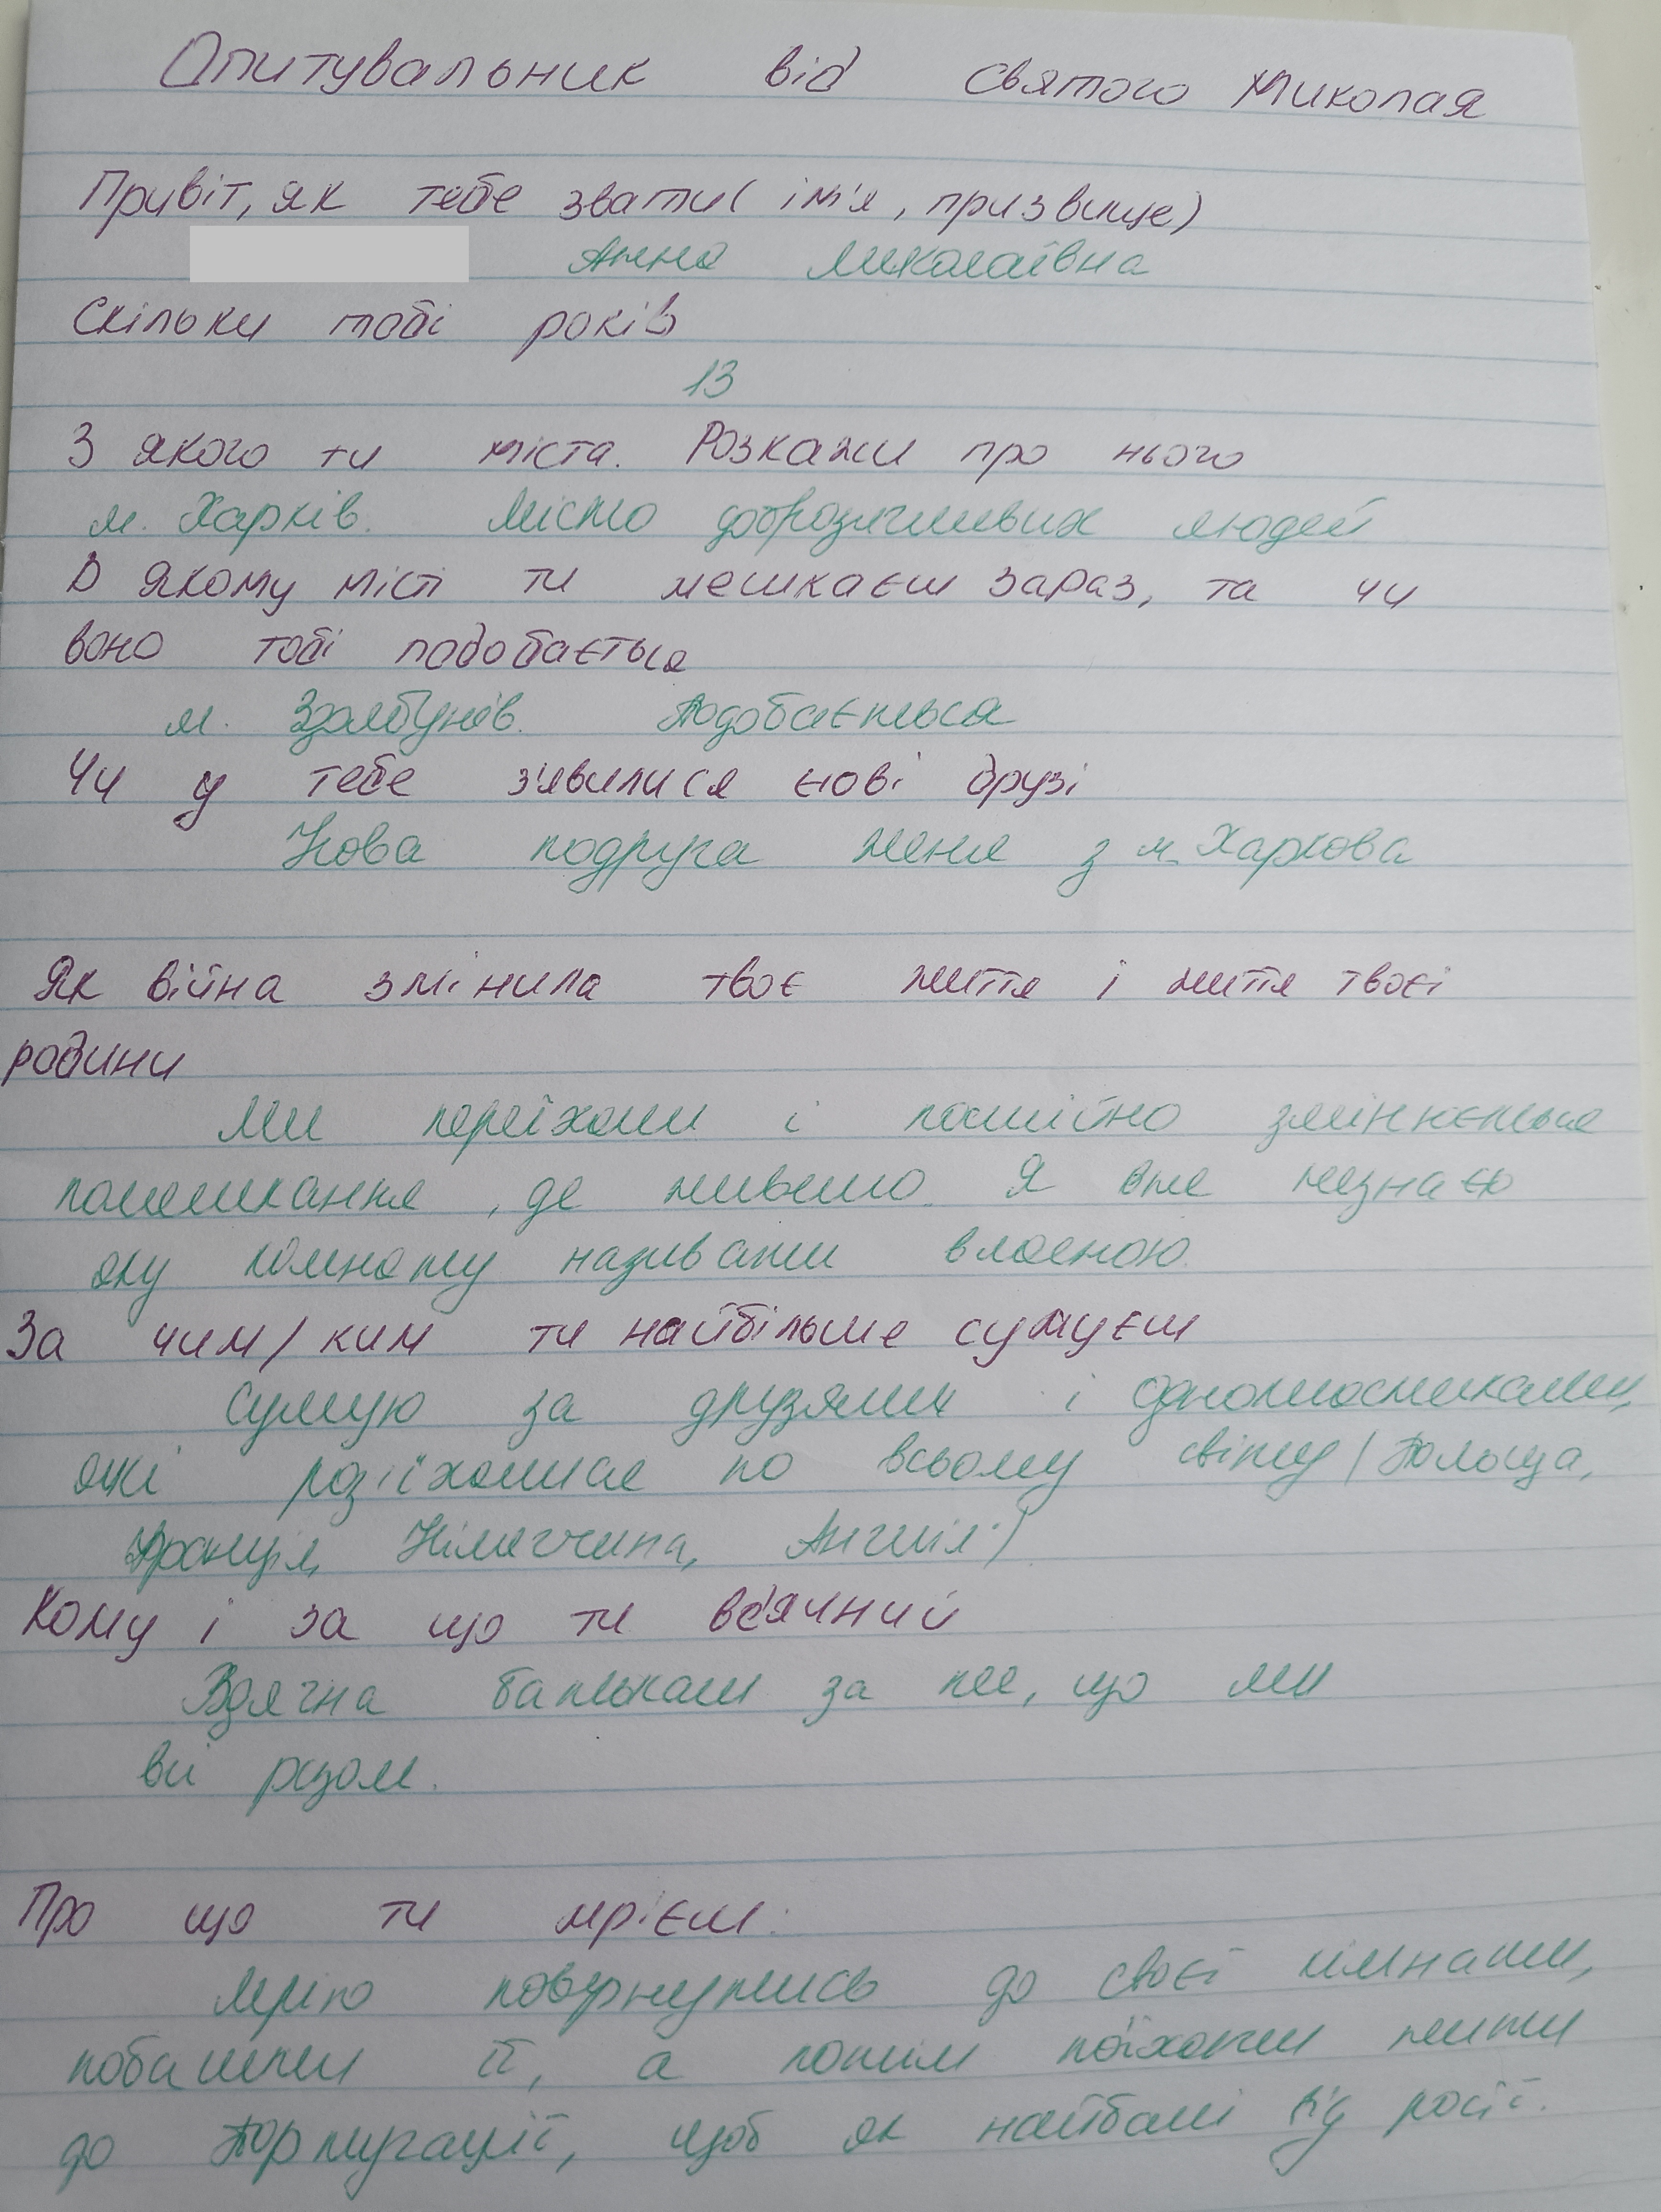 Опитувальник від Святого Миколая
Привіт, як тебе звати( ім'я, призвище)
Анна Миколаївна
Скільки тобі років
13
З якого ти міста. Розкажи про нього
м. Харків. Місто доброзичливих людей
В якому місті ти мешкаєш зараз, та чи
воно тобі подобається
м. Здолбунів. Подобається
Чи у тебе з'явилися нові друзі
Нова подруга Женя з м. Харкова
Як війна змінила твоє життя і життя твоєї
родини
Ми переїхали і постійно змінюється
помешкання, де живемо. Я вже незнаю
яку кімнату називати власною.
За чим/ ким ти найбільше сумуєш
Сумую за друзями і однокласниками,
які роз'їхалися по всьому світу (Польща,
Франція, Німеччина, Англія.)
Кому і за що ти вдячний
Вдячна батькам за те, що ми
всі разом.
Про що ти мрієш:
Мрію повернутись до своєї кімнати,
побачити її, а потім поїхати жити
до Португалії, щоб як найдалі від росії.